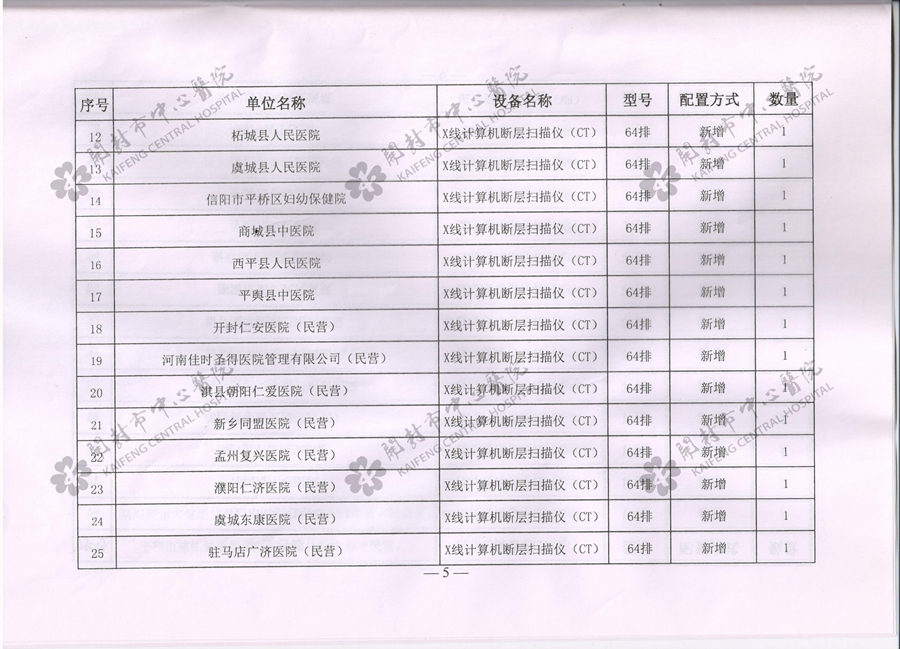 序号 单位名称 设备名称 型号 配置方式 数量
12 柘城县人民医院 X线计算机断层扫描仪（CT） 64排 新增 1
13 虞城县人民医院 X线计算机断层扫描仪（CT） 64排 新增 1
14 信阳市平桥区妇幼保健院 X线计算机断层扫描仪（CT） 64排 新增 1
15 商城县中医院 X线计算机断层扫描仪（CT） 64排 新增 1
16 西平县人民医院 X线计算机断层扫描仪（CT） 64排 新增 1
17 平舆县中医院 X线计算机断层扫描仪（CT） 64排 新增 1
18 开封仁安医院（民营） X线计算机断层扫描仪（CT） 64排 新增 1
19 河南佳时圣得医院管理有限公司（民营） X线计算机断层扫描仪（CT） 64排 新增 1
20 淇县朝阳仁爱医院（民营） X线计算机断层扫描仪（CT） 64排 新增 1
21 新乡同盟医院（民营） X线计算机断层扫描仪（CT） 64排 新增 1
22 孟州复兴医院（民营） X线计算机断层扫描仪（CT） 64排 新增 1
23 濮阳仁济医院（民营） X线计算机断层扫描仪（CT） 64排 新增 1
24 虞城东康医院（民营） X线计算机断层扫描仪（CT） 64排 新增 1
25 驻马店广济医院（民营） X线计算机断层扫描仪（CT） 64排 新增 1
—5—
開封市中心醫院
KAIFENG CENTRAL HOSPITAL
開封市中心醫院
KAIFENG CENTRAL HOSPITAL
開封市中心醫院
KAIFENG CENTRAL HOSPITAL
開封市中心醫院
KAIFENG CENTRAL HOSPITAL
開封市中心醫院
KAIFENG CENTRAL HOSPITAL
開封市中心醫院
KAIFENG CENTRAL HOSPITAL